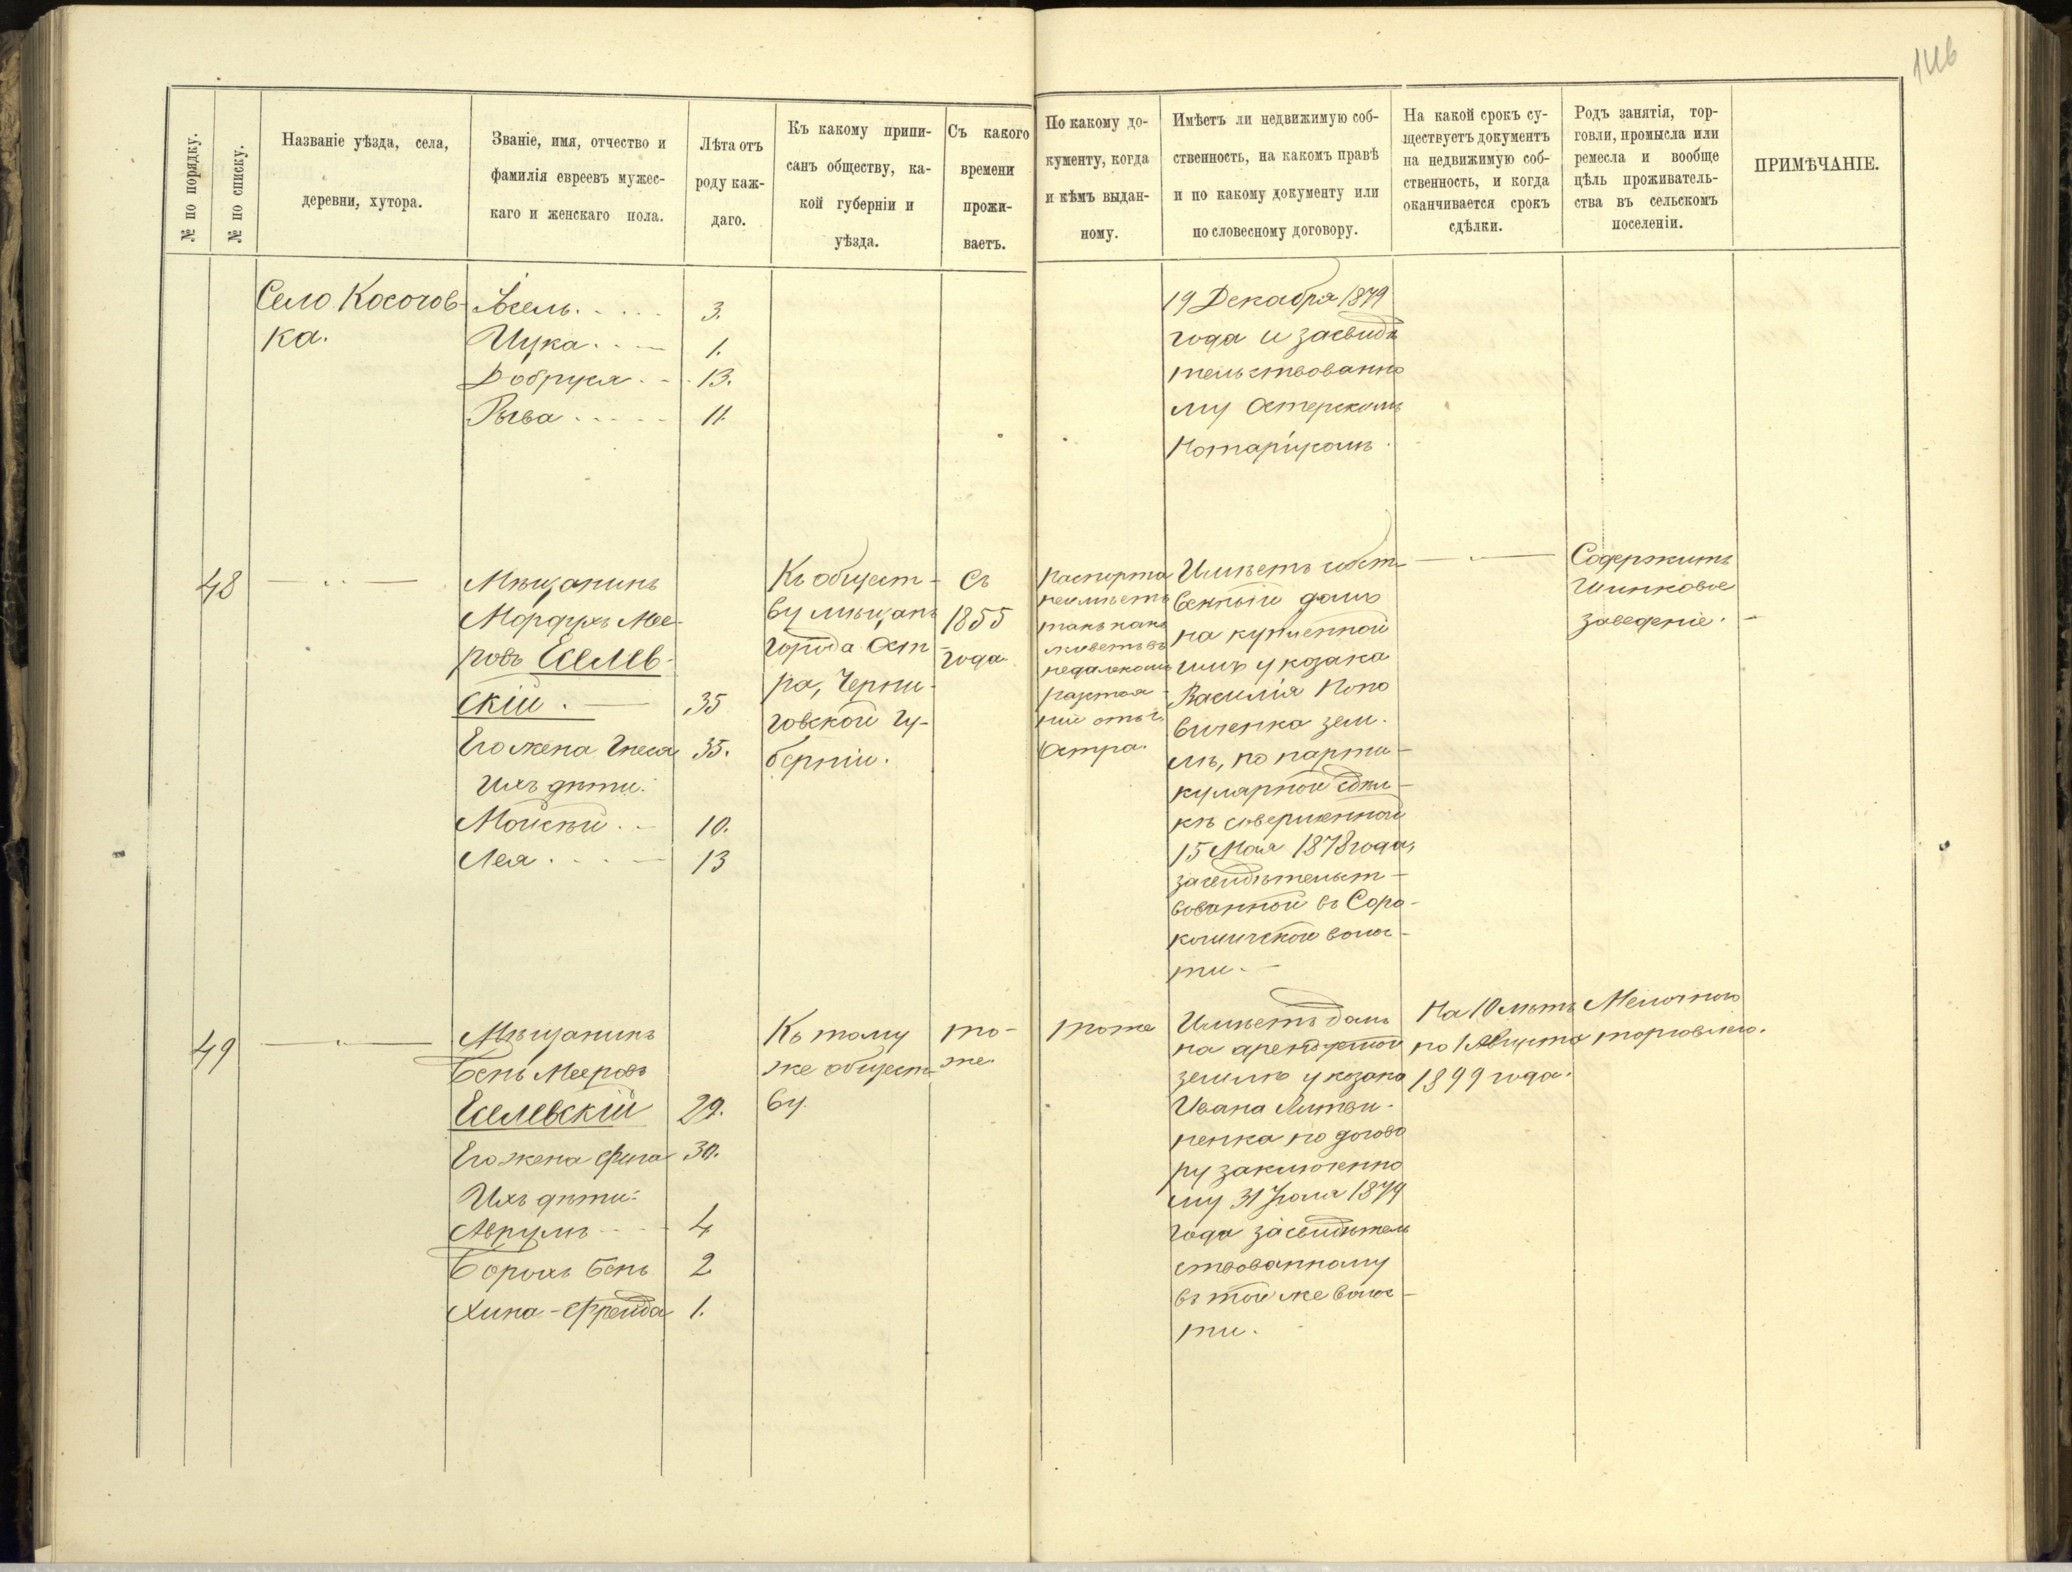 146
№ по порядку.
№ по списку.
Названіе уѣзда, села,
деревни, хутора.
Званіе, имя, отчество и
фамилія евреевъ мужес-
каго и женскаго пола.
Лѣта отъ
роду каж-
даго.
Къ какому припи-
санъ обществу, ка-
кой губерніи и
уѣзда.
Съ какого
времени
прожи-
ваетъ.
По какому до-
кументу, когда
и кѣмъ выдан-
ному.
Имѣетъ ли недвижимую соб-
ственность, на какомъ правѣ
и по какому документу или
по словесному договору.
На какой срокъ су-
ществуетъ документъ
на недвижимую соб-
ственность, и когда
оканчивается срокъ
сдѣлки.
Родъ занятія, тор-
говли, промысла или
ремесла и вообще
цѣль проживатель-
ства въ сельскомъ
поселеніи.
ПРИМѢЧАНІЕ.
Село Косочов-
ка.
3.
Цука 1.
Добруся 13.
Рыва 11
19 Декабря 1879
года и засвидѣ
тельствованно
му Остерскимъ
Нотаріусомъ.
48
Мѣщанинъ
Мордухъ Мее-
ровъ Еселев-
скій. 35
Его жена Гнеся 35.
Ихъ дѣти:
Мойсѣй 10.
Лея 13
Къ общест-
ву мѣщанъ
города Ост-
ра, Черни-
говской Гу-
берніи.
Съ
1855
года
Паспорта
неимѣетъ
такъ какъ
живетъ въ
недалекомъ
разстоя-
ніи отъ г.
Остра.
Имѣетъ собст-
венный домъ
на купленной
имъ у козака
Василія Попо
виченка зем-
лѣ, по парти-
кулярной сдѣл-
кѣ совершенной
15 Мая 1878 года,
засвидѣтельст-
вованной въ Соро-
кошичской волос-
ти.
Содержитъ
Шинковое
заведеніе.
49
Мѣщанинъ
Бень Мееровъ
Еселевскій 29.
Его жена Фрина 30.
Ихъ дѣти:
Аврумъ 4
Борохъ Бень 2
Хина-Фрейда 1.
Къ тому
же общест-
ву
то-
же
тоже
Имѣетъ домъ
на арендуемой
землѣ у козака
Ивана Литви-
ненка по догово
ру заключенно
му 31 Іюля 1879
года засвидѣтель
ствованному
въ той же волос-
ти.
На 10 лѣтъ
по 1 Августа
1899 года.
Мелочною
торговлею.